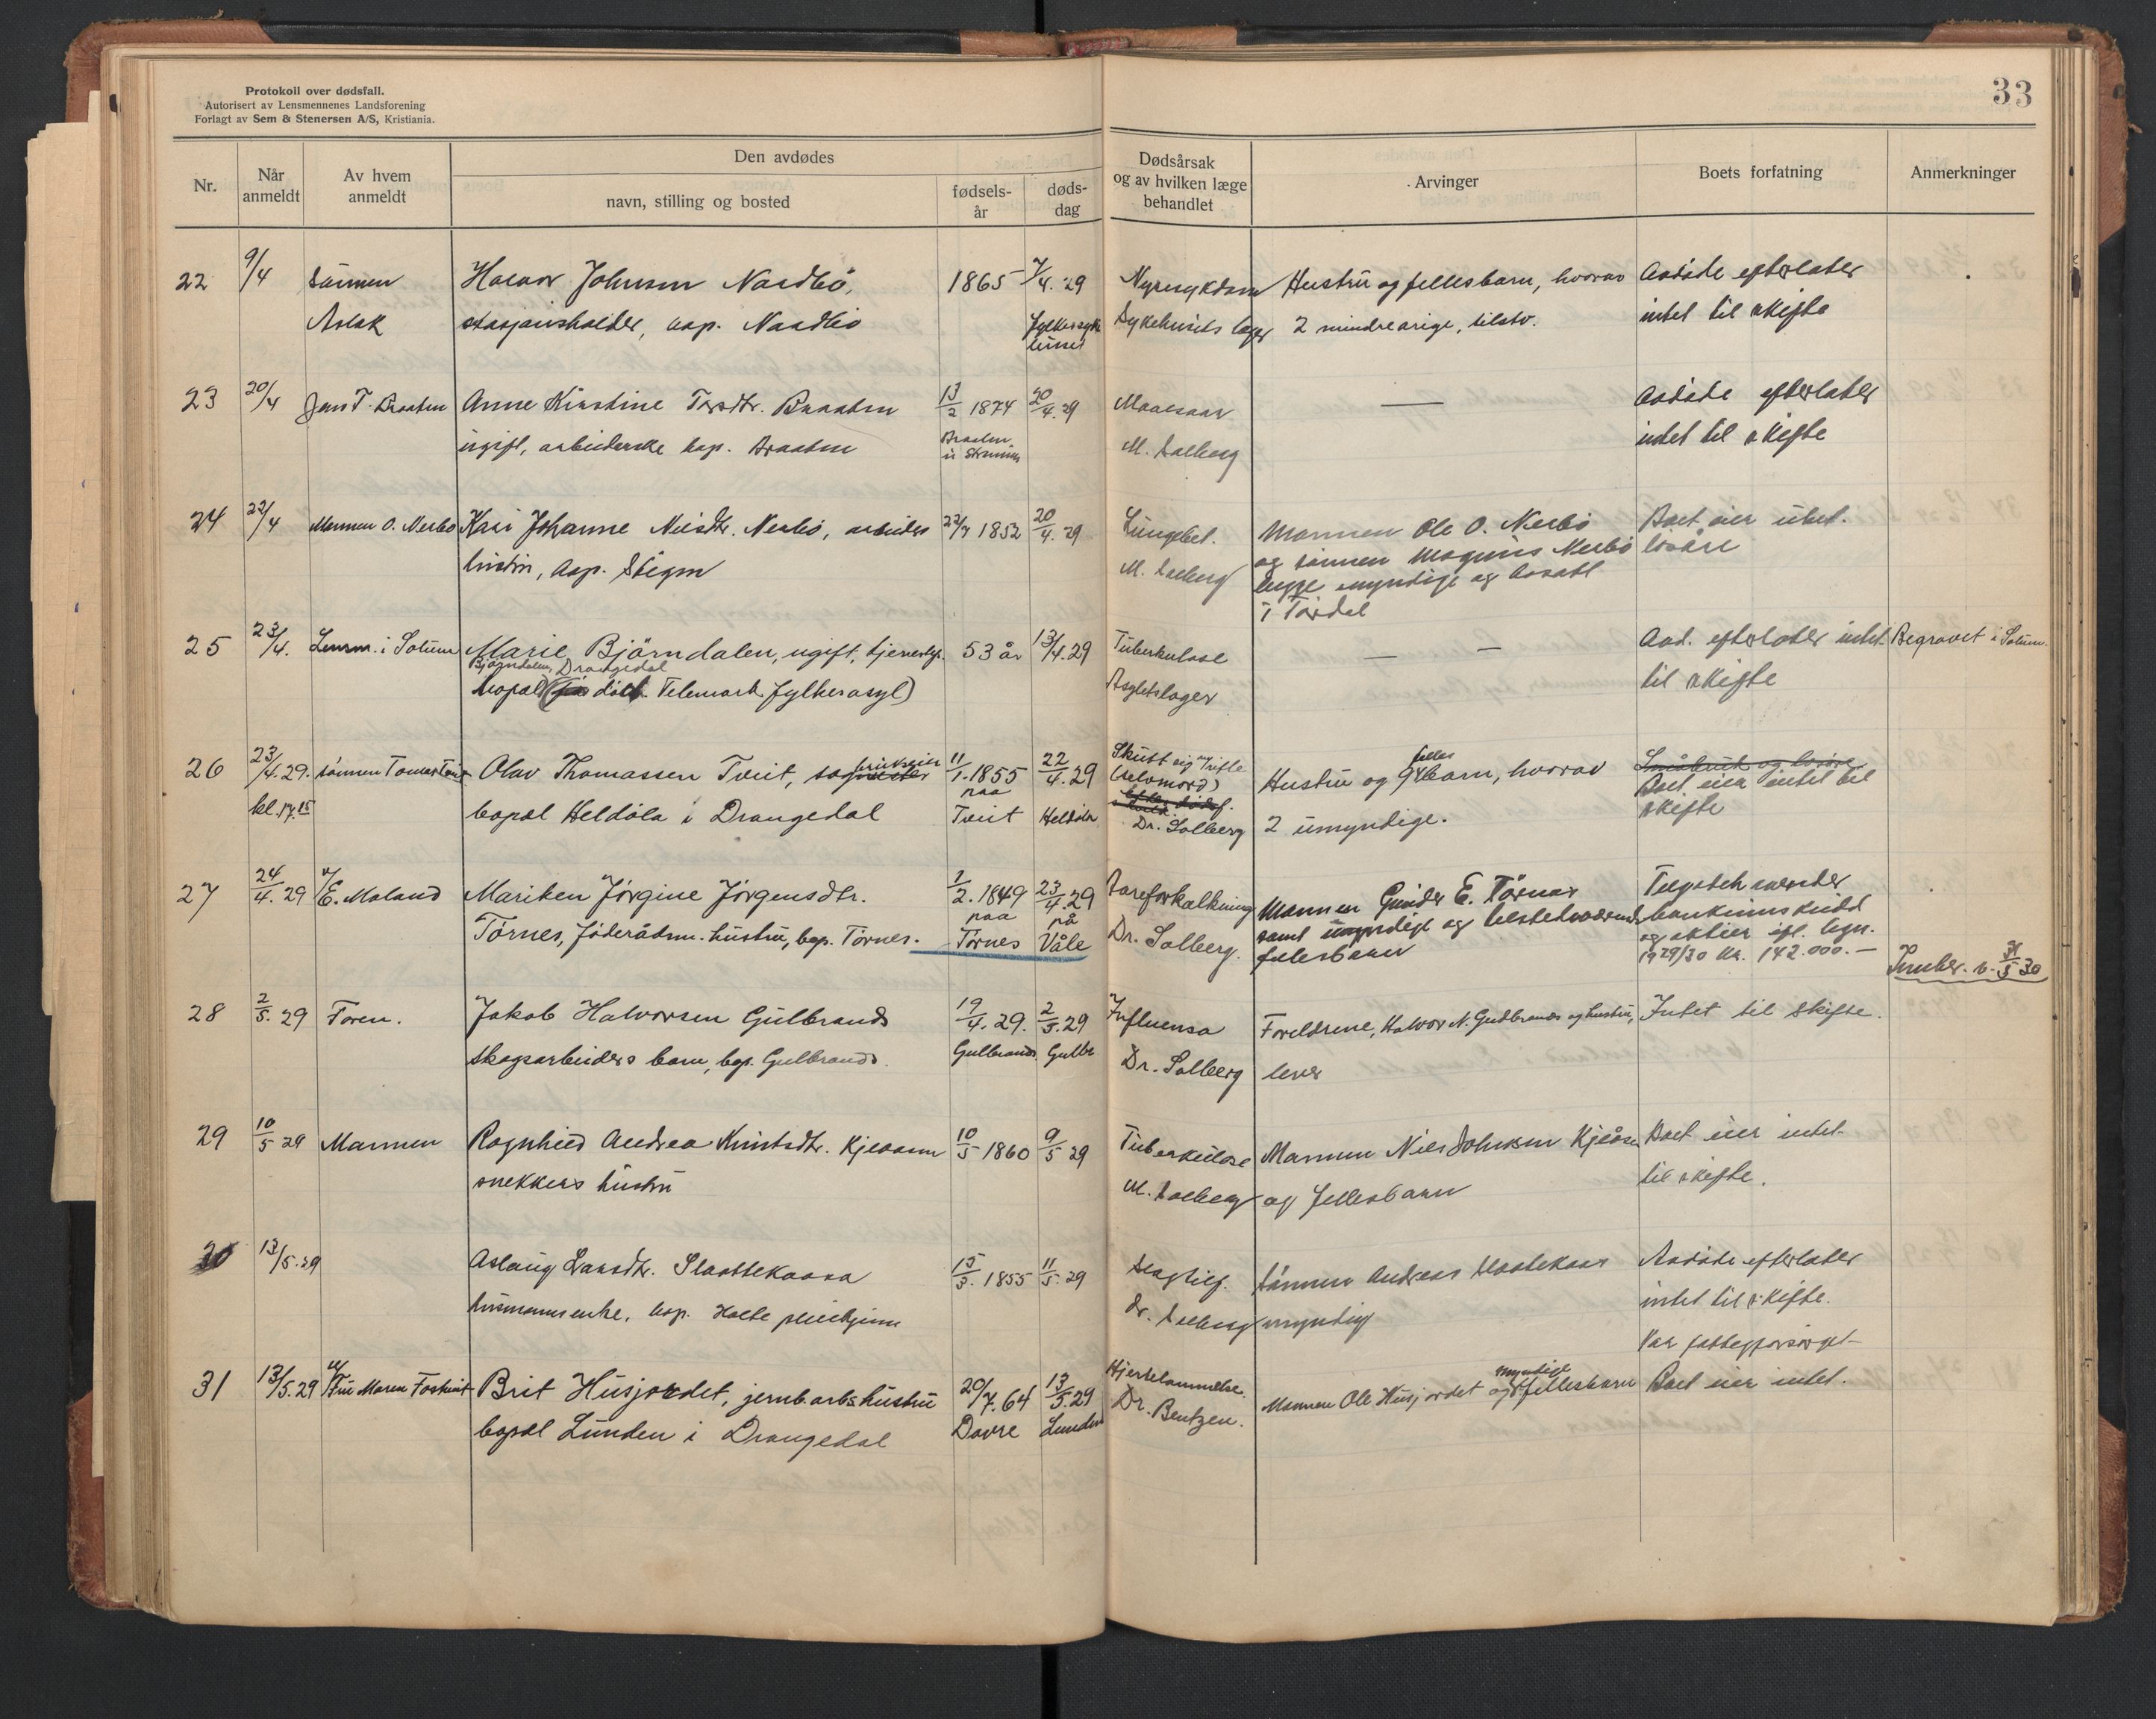 Protokoll over dødsfall.
Autorisert av Lensmennenes Landsforening
Forlagt av Sem & Stenersen A/S, Kristiania.
33
Nr.
Når anmeldt
Av hvem anmeldt
Den avdødes
navn, stilling og bosted
fødselsår
dødsdag
Dødsårsak og av hvilken læge behandlet
Arvinger
Boets forfatning
Anmerkninger
22 9/4 Sönnen Johnsen Naadbö, 1865 7/4.29 Nyresykdom Hustru og fellesbarn, hvorav Avdöde efterlater
Aslak stasjonsholder, bop. Sykehusets læger 2 mindreårige, tilstv. intet til skifte
Fylkessyke
huset
23 20/4 Jens T. Braaten Anne Kirstine Braaten 13/2 1874 20/4.29 — Avdöde efterlater
ugift, arbeiderske bop. Braaten M. Solberg intet til skifte
24 22/4 Mannen O. Nerbö Kari Johanne Nilsdtr. Nerbö, arbeiders 22/7 1852 20/4.29 Lungebet. Mannen Ole O. Nerbö Boet eier ubet.
hustru, bop. Stigen M. Solberg og sönnen Magnus Nerbö lösöre
begge myndige og bosatt
i Tördal
25 23/4. Lensm. i Solum Marie Björndalen, ugift, tjenestepi. 53 år 13/4.29 Tuberkulose — — Avd. efterlater intet Begravet i Solum.
Björndalen, Drangedal
bopæl ( död Telemark fylkesasyl) Asyletslæger til skifte
26 23/4.29. sönnen Tomas Tveit Olav Thomassen Tveit, brukseier 11/1.1855 22/4.29 Skutt sig Hustru og 9 felles barn, hvorav Småbruk og lösöre
kl. 17.15 bopæl Heldöla i Drangedal paa Tveit Heldöla (selvmord) 2 umyndige. Boet eier intet til
Dr. Solberg skifte
27 24/4.29 v/ E. Moland Mariken Jörgine Jörgensdtr. 1/2.1849 23/4.29 Aareforkalkning Mannen Gunder E. Törnes
Törnes, föderådsm. hustru, bop. Törnes. paa Törnes på Våle Dr. Solberg. samt myndige og tilstedeværende bankinnskudd
fellesbarn og aktier ifl. lign.
1929/30 kr. 142.000.—
28 2/5.29 Faren. Jakob Halvorsen Gulbrands 19/4.29. 2/5.29 Influensa Foreldrene, Halvor N. Gudbrands og hustru, Intet til skifte.
skogsarbeiders barn, bop. Gulbrands. Gulbrands. Gulbr Dr. Solberg lever
29 10/5 29 Mannen Ragnhild Andrea Knutsdtr. Kjeaasen 10/5 1860 9/5 29 Tuberkulose Mannen Nils Johnsen Kjeåsen Boet eier intet
snekkers hustru M. Solberg og fellesbarn til skifte.
30 13/5.29 Aslaug Larsdtr. Slaattekaasa 15/3.1855 11/5.29 Slagtilf. Sönnen Andreas Slaatekaas Avdöde efterlater
husmannsenke, bop. Holte pleiehjem dr. Solberg myndig intet til skifte.
Var fattigforsörget
31 13/5.29 v/ Fru Maren Fostveit Brit Husjordet, jernb.arb.s hustru 20/7.64 13/5.29 Hjertelammelse. Mannen Ole Husjordet og myndige fellesbarn Boet eier intet.
bopæl Lunden i Drangedal Dovre Lunden Dr. Bentzen.